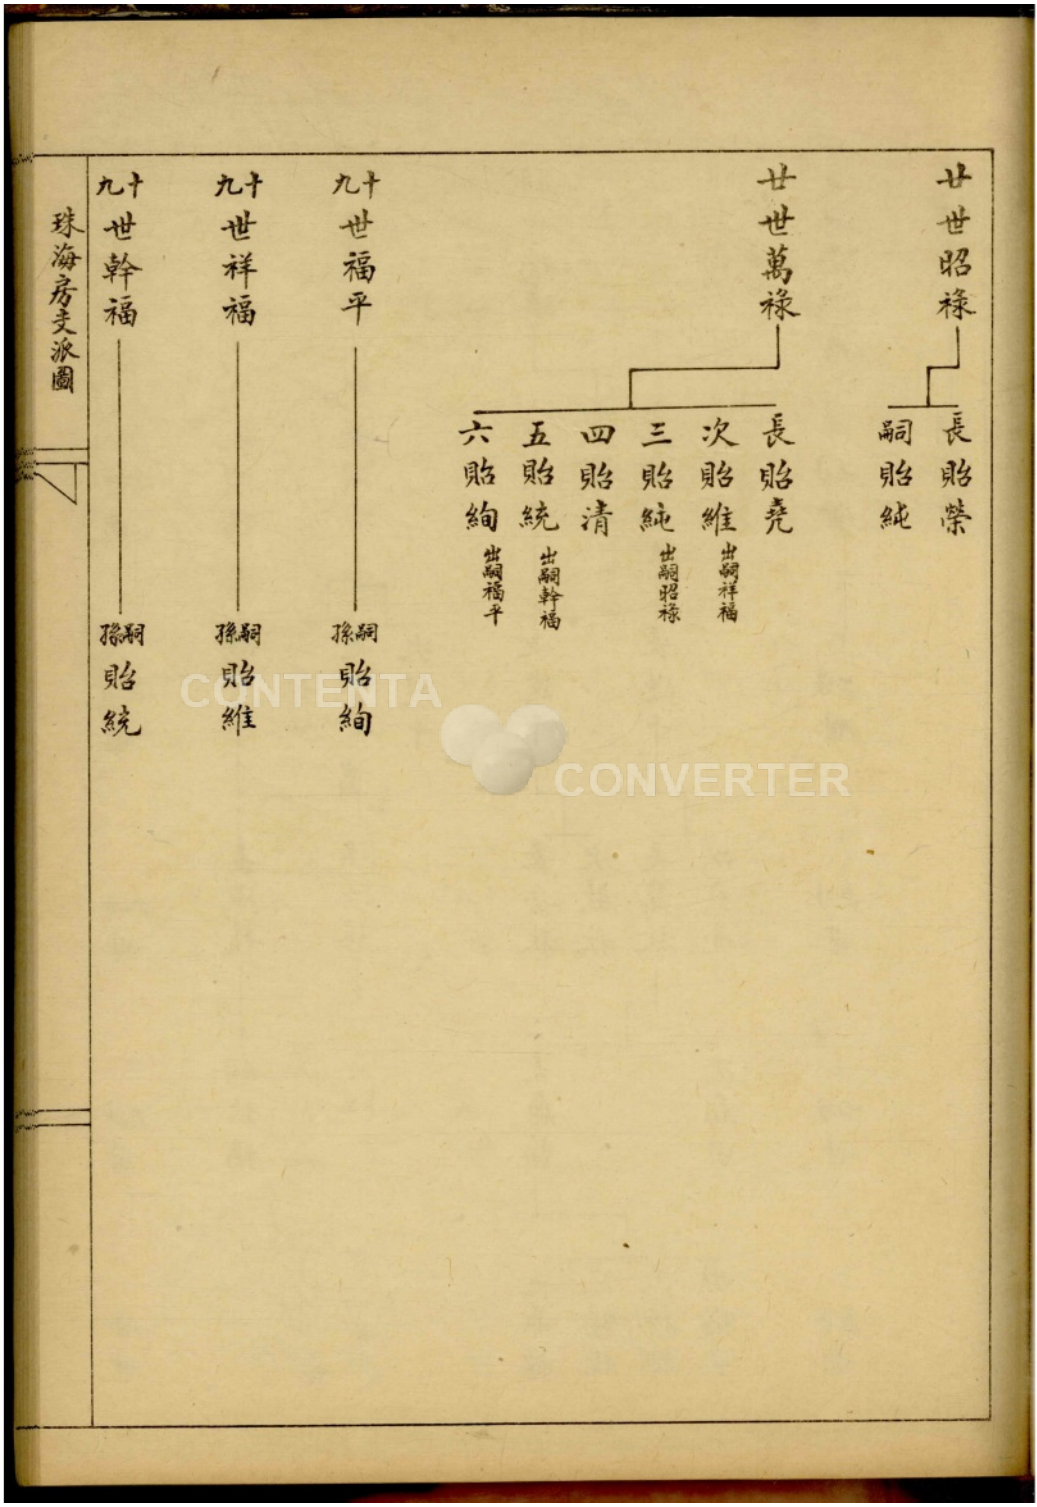 廿世昭祿
長貽榮
嗣貽純
廿世萬祿
長貽堯
次貽維 出嗣祥福
三貽純 出嗣昭祿
四貽清
五貽統 出嗣幹福
六貽絢 出嗣福平
十九世福平
嗣孫貽絢
十九世祥福
嗣孫貽維
十九世幹福
嗣孫貽統
珠海房支派圖
CONTENTA
CONVERTER